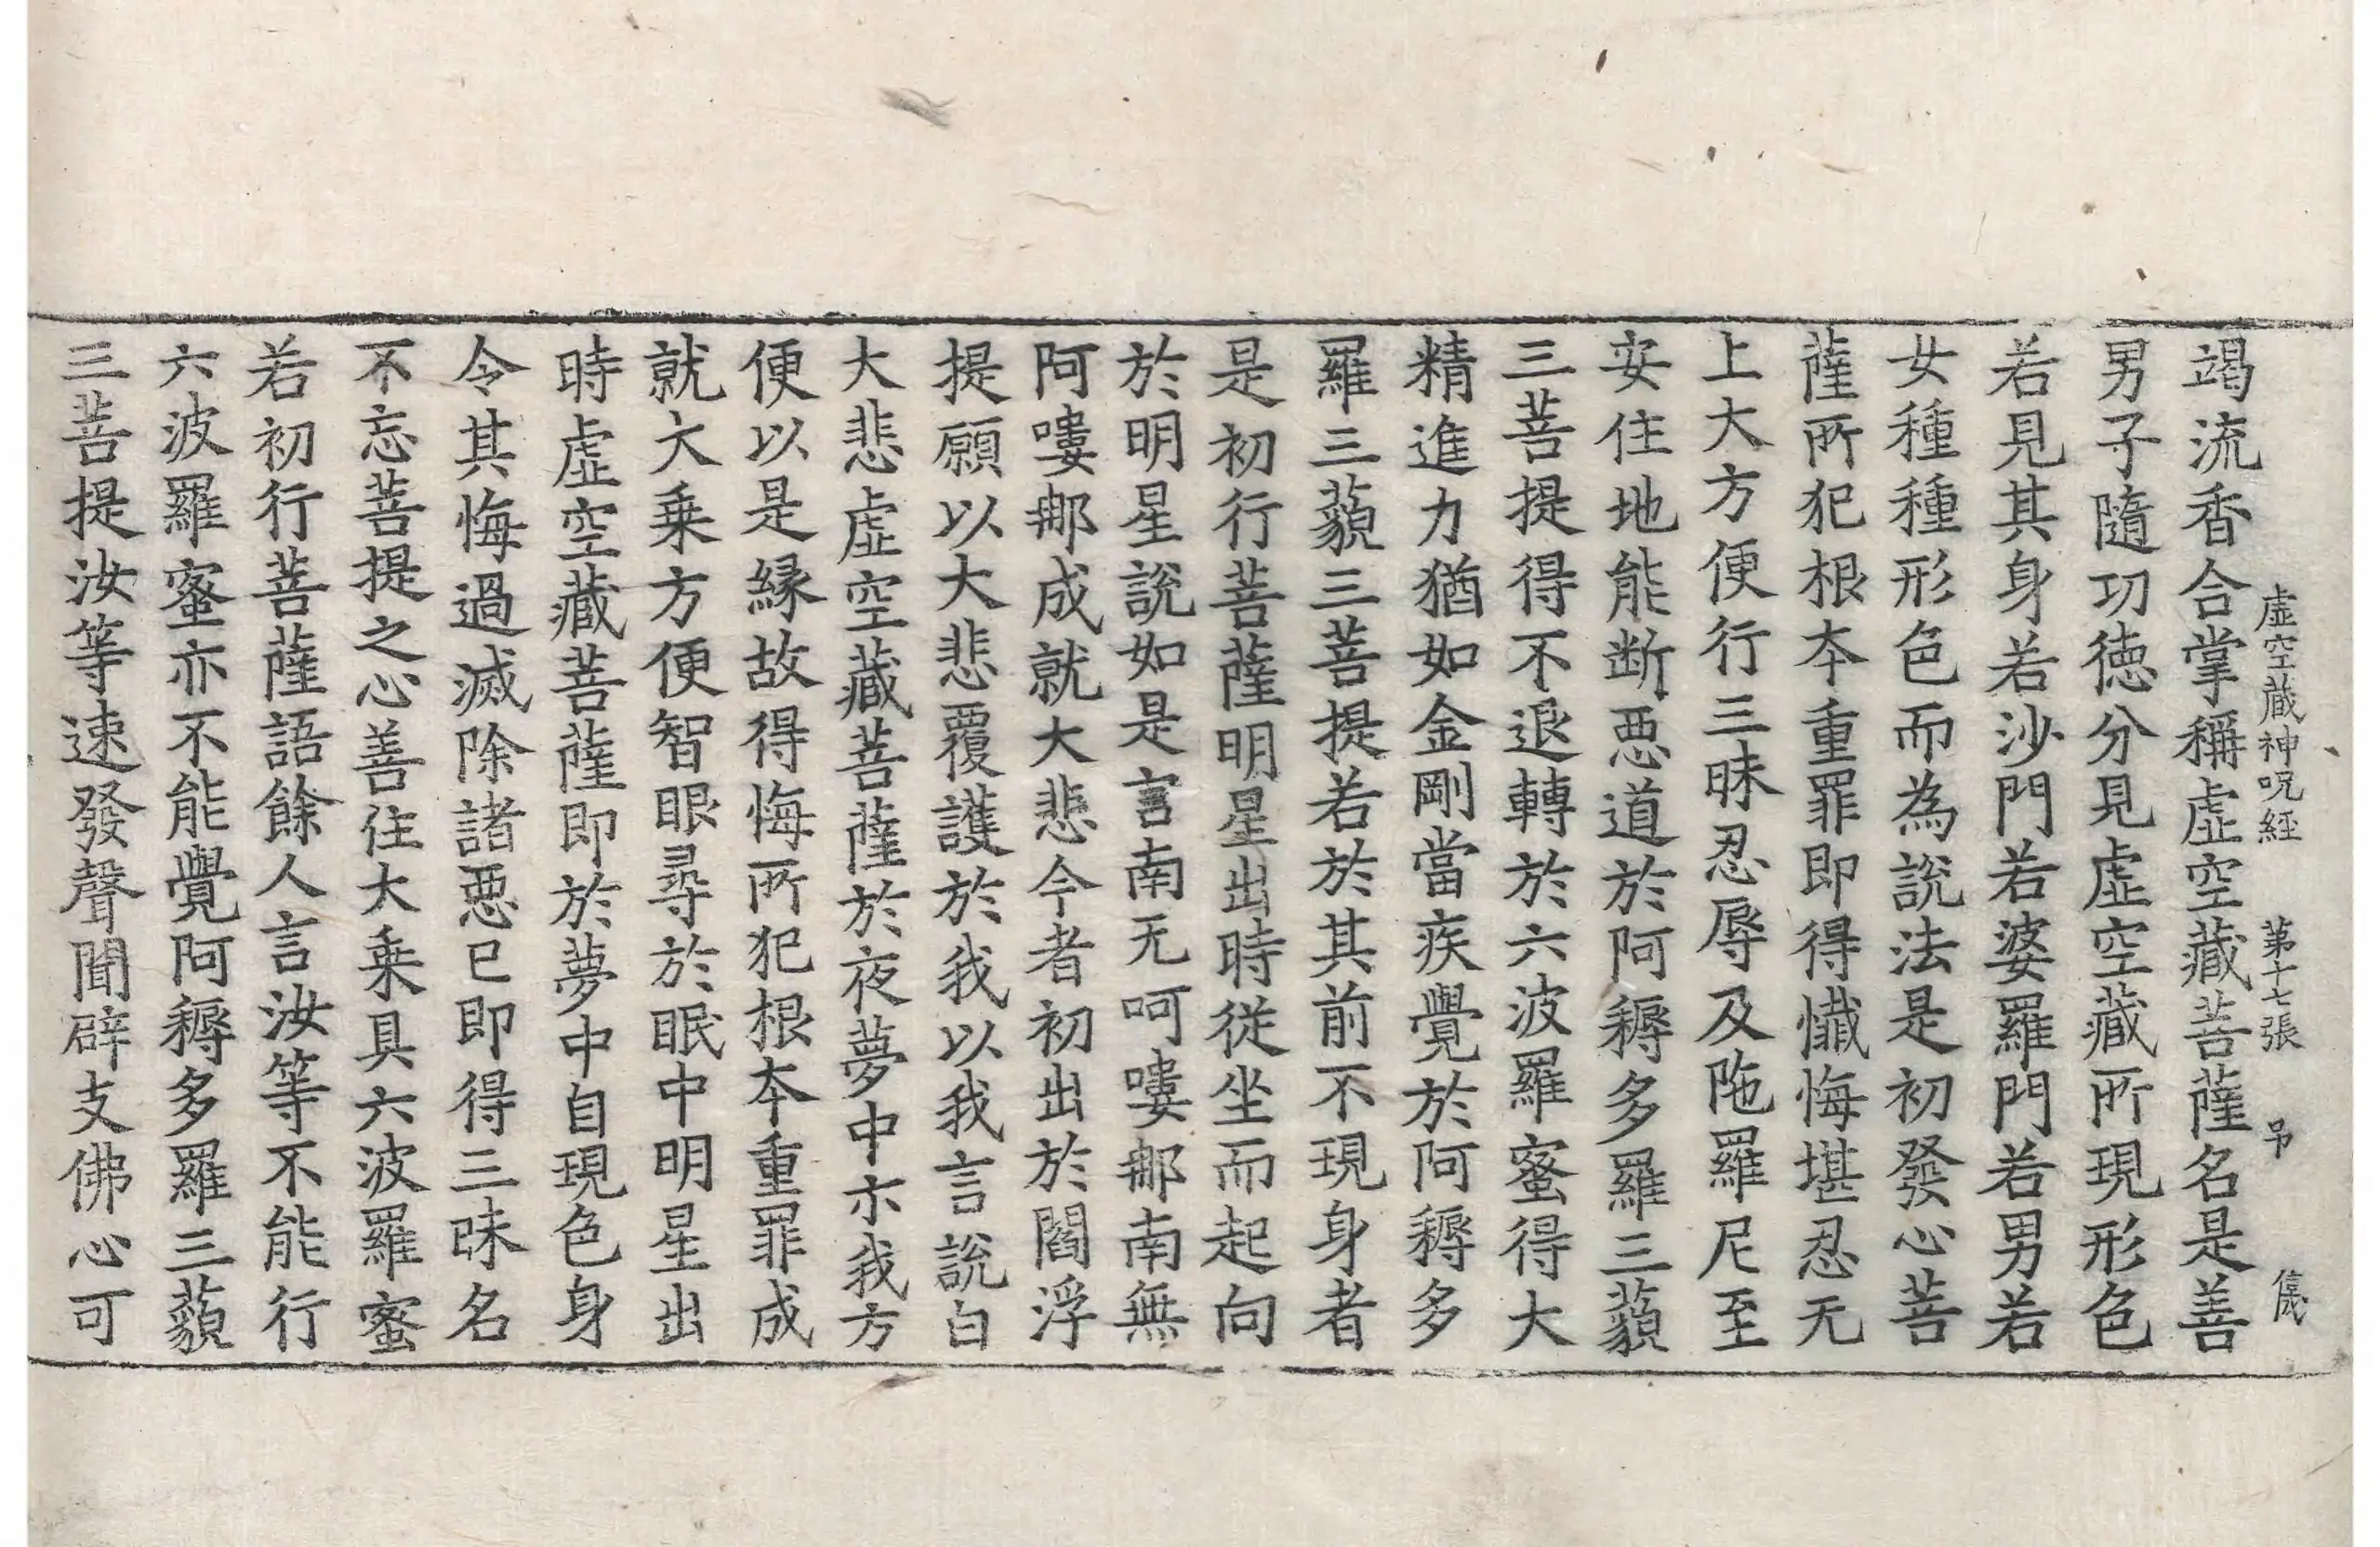 虛空藏神呪経 第十七張 弔 儀
竭流香合掌稱虛空藏菩薩名是善
男子隨功徳分見虛空藏所現形色
若見其身若沙門若婆羅門若男若
女種種形色而為說法是初發心菩
薩所犯根夲重罪即得懺悔堪忍无
上大方便行三昧忍辱及陁羅尼至
安住地能断惡道於阿耨多羅三藐
三菩提得不退轉於六波羅蜜得大
精進力猶如金剛當疾覺於阿耨多
羅三藐三菩提若於其前不現身者
是初行菩薩明星出時從坐而起向
於明星說如是言南无呵嘍𨚗南無
阿嘍𨚗成就大悲今者初出於閻浮
提願以大悲覆護於我以我言說白
大悲虛空藏菩薩於夜夢中示我方
便以是縁故得悔所犯根夲重罪成
就大乗方便智眼尋於眠中明星出
時虛空藏菩薩即於夢中自現色身
令其悔過滅除諸惡已即得三昧名
不忘菩提之心善住大乗具六波羅蜜
若初行菩薩語餘人言汝等不能行
六波羅蜜亦不能覺阿耨多羅三藐
三菩提汝等速發聲聞辟支佛心可